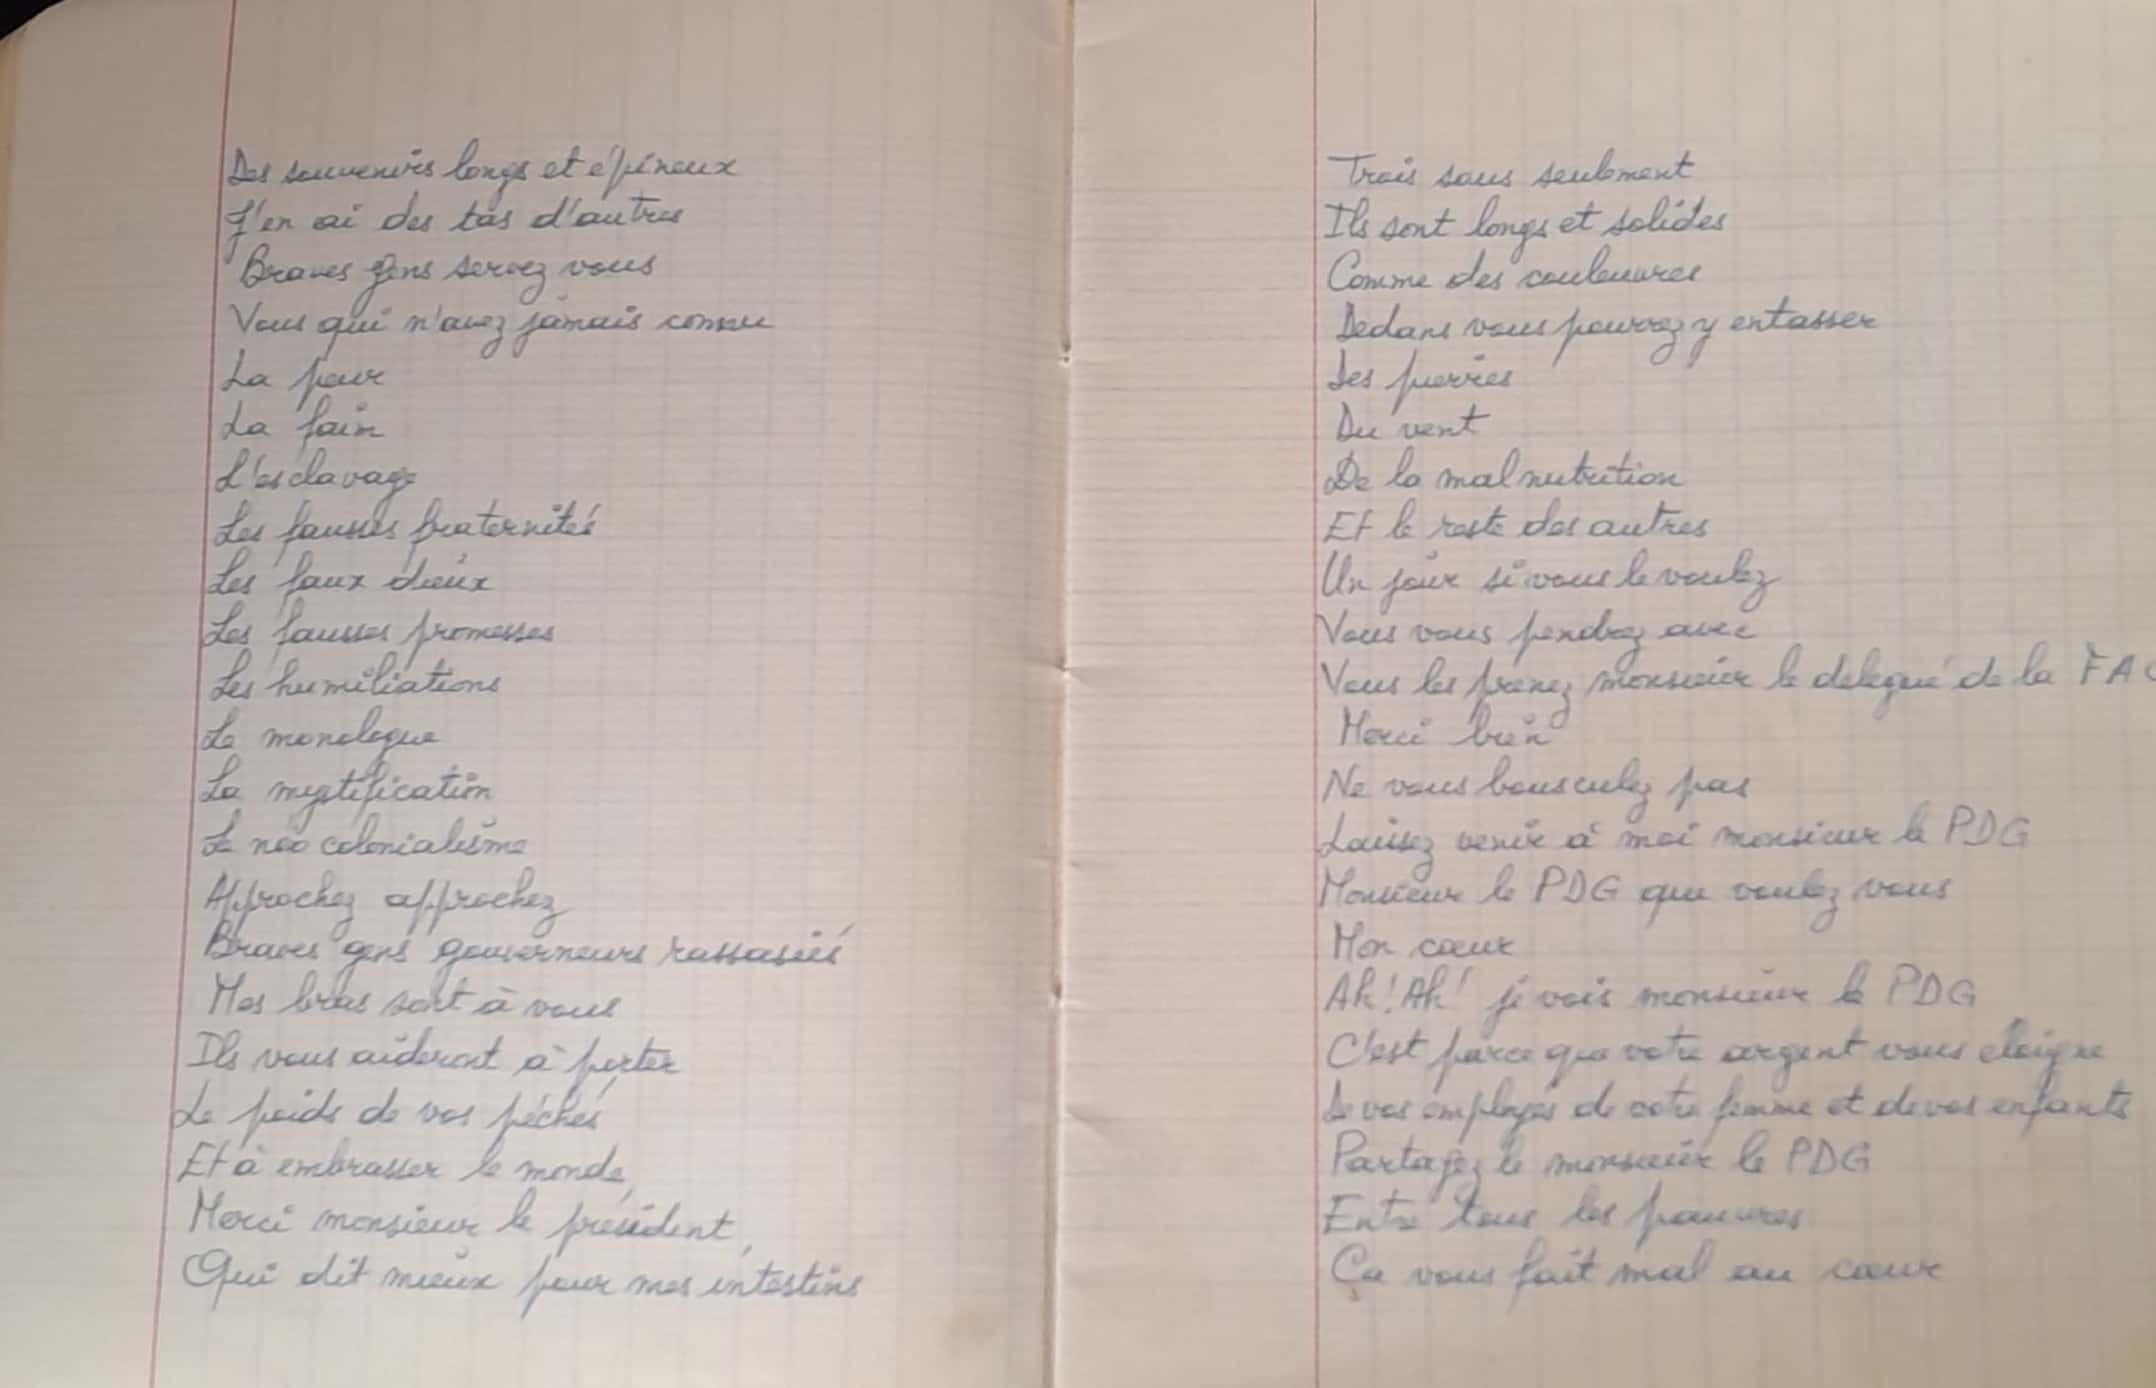 Des souvenirs longs et épineux
J'en ai des tas d'autres
Braves gens servez vous
Vous qui n'avez jamais connu
La peur
La faim
L'esclavage
Les fausses fraternités
Les faux dieux
Les fausses promesses
Les humiliations
Le monologue
La mystification
Le néo colonialisme
Approchez approchez
Braves gens gouverneurs rassasiés
Mes bras sont à vous
Ils vous aideront à porter
Le poids de vos péchés
Et à embrasser le monde
Merci monsieur le président
Qui dit mieux pour mes intestins
Trois sous seulement
Ils sont longs et solides
Comme des couleuvres
Dedans vous pourrez y entasser
Des pierres
Du vent
De la malnutrition
Et le reste des autres
Un jour si vous le voulez
Vous vous pendrez avec
Vous les prenez monsieur le délégué de la FA
Merci bien
Ne vous bousculez pas
Laissez venir à moi monsieur le PDG
Monsieur le PDG que voulez vous
Mon cœur
Ah! Ah! je vois monsieur le PDG
C'est parce que votre argent vous éloigne
De vos employés de votre femme et de vos enfants
Partagez le monsieur le PDG
Entre tous les pauvres
Ça vous fait mal au cœur